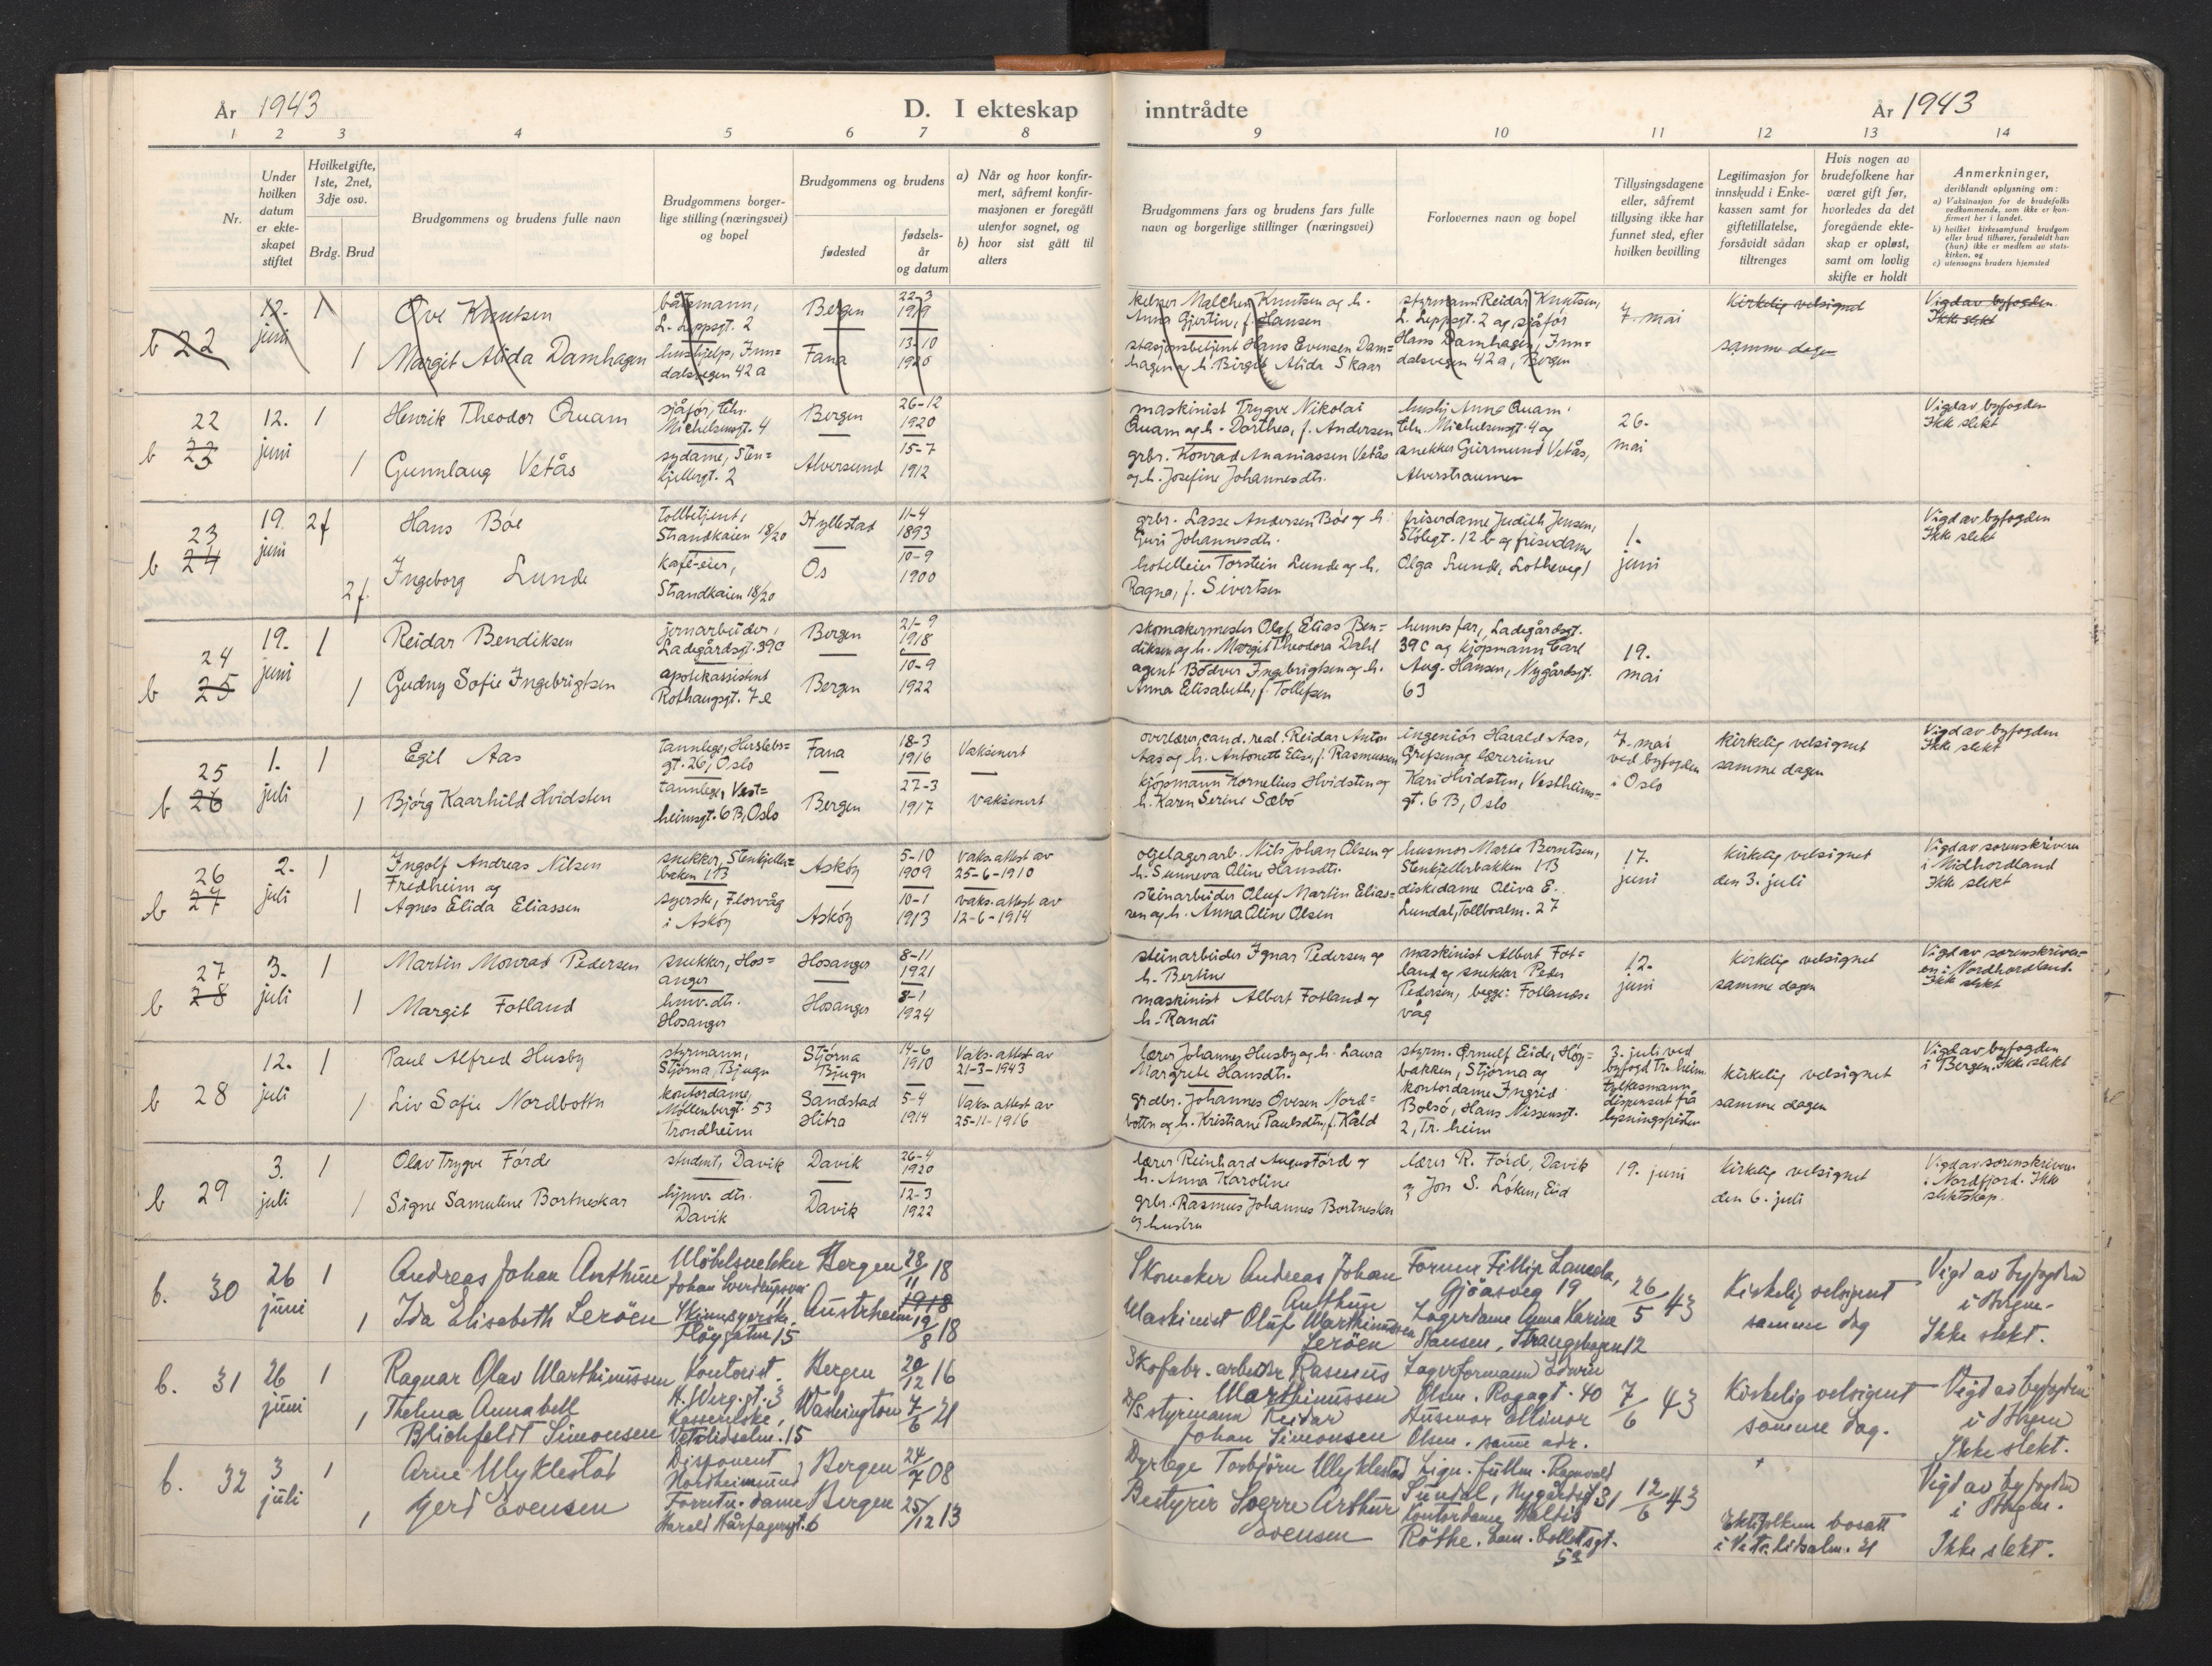 År 1943
D. I ekteskap inntrådte
År 1943
1 2 3 4 5 6 7 8 9 10 11 12 13 14
Nr.
Under hvilken datum er ekteskapet stiftet
Hvilket gifte, 1ste, 2net, 3dje osv.
Brdg. Brud
Brudgommens og brudens fulle navn
Brudgommens borgerlige stilling (næringsvei) og bopel
Brudgommens og brudens
fødested
fødselsår og datum
a) Når og hvor konfirmert, såfremt konfirmasjonen er foregått utenfor sognet, og
b) hvor sist gått til alters
Brudgommens fars og brudens fars fulle navn og borgerlige stillinger (næringsvei)
Forlovernes navn og bopel
Tillysingsdagene eller, såfremt tillysing ikke har funnet sted, efter hvilken bevilling
Legitimasjon for innskudd i Enkekassen samt for giftetillatelse, forsåvidt sådan tiltrenges
Hvis nogen av brudefolkene har været gift før, hvorledes da det foregående ekteskap er opløst, samt om lovlig skifte er holdt
Anmerkninger,
deriblandt oplysning om:
a) Vaksinasjon for de brudefolks vedkommende, som ikke er konfirmert her i landet.
b) hvilket kirkesamfund brudgom eller brud tilhører, forsåvidt han (hun) ikke er medlem av statskirken, og
c) utensogns bruders hjemsted
b 22
12. juni
1
Ove Knutsen
båtsmann,
L. Leppsgt. 2
Bergen
22-3
1919
kelner Melcher Knutsen og h.
Anna Gjertin, f. Hansen
styrmann Reidar Knutsen,
L. Leppsgt. 2 og sjåfør
7. mai
Kirkelig velsignet
samme dage
Vigd av byfogden
Ikke slekt
1
Margit Alida Damhagen
hushjelp, Inn=
dalsvegen 42a
Fana
13-10
1920
stasjonsbetjent Hans Evensen Dam=
hagen og h. Birgit Alida Skaar
Hans Damhagen, Inn=
dalsvegen 42a, Bergen
22
b 23
12. juni
1
Henrik Theodor Quam
sjåför, Chr.
Michelsensgt. 4
Bergen
26-12
1920
maskinist Trygve Nikolai
Quam og h. Dorthea, f. Andersen
hushj. Anna Quam,
Chr. Michelsensgt. 4 og
26.
mai
Vigd av byfogden
Ikk slekt
1
Gunnlaug Vetås
sydame, Sten=
kjellergt. 2
Alversund
15-7
1912
grbr. Konrad Ananiassen Vetås
og h. Josefine Johannesdtr.
snekker Geirmund Vetås,
Alverstraumen
23
b 24
19. juni
2f
Hans Böe
tollbetjent,
Strandkaien 18/20
Hyllestad
11-4
1893
grbr. Lasse Andersen Böe og h.
Guri Johannesdtr.
friserdame Judith Jensen,
Stölegt. 12 b og friserdame
1.
juni
Vigd av byfogden
Ikke slekt
2f.
Ingeborg Lunde
kafé-eier,
Strandkaien 18/20
Os
10-9
1900
hotelleier Torstein Lunde og h.
Ragna, f. Sivertsen
Olga Lunde, Lothevegl
24
b 25
19. juni
1
Reidar Bendiksen
jernarbeider,
Ladegårdsgt. 39c
Bergen
21-9
1918
skomakermester Olaf Elias Ben=
diksen og h. Margit Theodora Dahl
hennes far, Ladegårdsgt.
39c og kjøpmann Carl
19.
mai
1
Gudny Sofie Ingebrigtsen
apotekassistent
Rothaugsgt. 7e
Bergen
10-9
1922
agent Bödver Ingebrigtsen og h.
Anna Elisabeth, f. Tollefsen
Aug. Hansen, Nygårdsgt.
63
25
b 26
1. juli
1
Egil Aas
tannlege, Herslebs=
gt. 26, Oslo
Fana
18-3
1916
Vaksinert
overlærer, cand. real. Reidar Anton
Aas og h. Antonette Elise, f. Rasmussen
ingeniör Harald Aas,
Grefsen og lærerinne
7. mai
ved byfogden
i Oslo
Kirkelig velsignet
samme dagen
Vigd av byfogden
Ikke slekt
1
Bjørg Kaarhild Hvidsten
tannlege, Vest=
heimsgt. 6B, Oslo
Bergen
27-3
1917
vaksinert
kjöpmann Kornelius Hvidsten og
h. Karen Serine Sæbö
Kari Hvidsten, Vestheims=
gt. 6 B, Oslo
26
b 27
2. juli
1
Ingolf Andreas Nilsen
Fredheim og
snekker, Stenkjeller=
baken 1B
Askøy
5-10
1909
Vaks. attest av
25-6-1910
oljelagerarb. Nils Johan Olsen og
h. Sunneva Oline Hansdtr.
husmor Marta Berntsen,
Stenkjellerbakken 1B
17.
juni
Kirkelig velsignet
den 3. juli
Vigd av sorenskriveren
i Midhordland
Ikke slekt
1
Agnes Elida Eliassen
syerske, Florvåg
i Askøy
Askøy
10-1
1913
vaks. attest av
12-6-1914
steinarbeider Oluf Martin Elias=
sen og h. Anna Oline Olsen
diskedame Oliva E.
Lundal, Tollboalm. 27
27
b 28
3. juli
1
Martin Monrad Pedersen
snekker, Hos=
anger
Hosanger
8-11
1921
steinarbeider Ignar Pedersen og
h. Bertine
maskinist Albert Fot=
land og snekker Peder
12.
juni
Kirkelig velsignet
samme dagen
Vigd av sorenskriver=
en i Nordhordland.
Ikk slekt
1
Margit Fotland
hmv. dtr.
Hosanger
Hosanger
8-1
1924
maskinist Albert Fotland og
h. Randi
Pedersen, begge: Fotlands=
våg
b 28
12. juli
1
Paul Alfred Husby
styrmann,
Stjörna, Bjugn
Stjörna
Bjugn
14-6
1910
Vaks. attest av
21-3-1943
lærer Johannes Husby og h. Laura
Margrete Hansdtr.
styrm. Ørnulf Eide, Høy=
bakken, Stjörna og
3. juli ved
byfogd Tr. heim
fylkesmann
dispensert fra
lysningsfristen
kirkelig velsignet
samme dagen
Vigd av byfogden
i Bergen. Ikke slekt
1
Liv Sofie Nordbotn
kontordame,
Möllenbergt. 53
Trondheim
Sandstad
Hitra
5-4
1914
Vaks. attest av
25-11-1916
grdbr. Johannes Ovesen Nord=
bottn og h. Kristiane Paulsdtr, f. Kald
kontordame Ingrid
Bolsö, Hans Nissensgt.
2, Tr. heim
b 29
3. juli
1
Olav Trygve Förde
student, Davik
Davik
26-4
1920
lærer Reinhard August Förd og
h. Anna Karoline
lærer R. Förd, Davik
og Jon S. Löken, Eid
19. juni
Kirkelig velsignet
den 6. juli
Vigd av sorenskriveren
i Nordfjord. Ikke
slektskap.
1
Signe Samuline Bortneskar
hjmv. dtr.
Davik
Davik
12-3
1922
grbr. Rasmus Johannes Bortneskar
og hustru
b. 30
26 juni
1
Andreas Johan Anthun
Möbelsnekker
Johan Sverdrupsvei 11
Bergen
28/11 18
1918
Skomaker Andreas Johan
Anthun
Formm Fillip Landa,
Gjöasveg 19
26/5 43
Kirkelig velsignet
samme dag
Vigd av byfogden
i Bergen.
Ikke slekt.
1
Ida Elisabeth Leröen
Skinnsyerske,
Flöygaten 15
Austrheim
19/8 18
Maskinist Oluf Marthinussen
Leröen
Lagerdame Anna Karine
Hansen, Strangehagen 12
b. 31
26 juni
1
Ragnar Olav Marthinussen
Kontorist.
H. Werg. gt. 3
Bergen
20/12 16
Skofabr. arbeider Rasmus
Marthinussen
Lagerformann Edwin
Olsen. Rogagt. 40
7/6 43
Kirkelig velsignet
samme dag.
Vigd av byfogden
i Bergen
Ikke slekt.
1
Thelma Annabell
Blichfeldt Simonsen
Kassererske,
Vetrlidsalm. 15
Washington
7/6 21
D/S styrmann Reidar
Johan Simonsen
Husmor Ellinor
Olsen. samme adr.
b. 32
3 juli
1
Arne Myklestad
Disponent
Nordheimsund
Bergen
24/7 08
Dyrlege Torbjörn Myklestad
Lign. fullm. Ragnvald
Sundal, Nygårdsgt 31
12/6 43
Ektefolkene bosatt
i Vetrlidsalm. 21
Vigd av byfogden
i Bergen.
Ikke slekt.
1
Gerd Evensen
Forretn. dame
Harald Hårfagersgt. 6
Bergen
25/12 13
Bestyrer Sverre Arthur
Evensen
Kontordame Haldis
Röthe. Cam. Collettsgt.
53